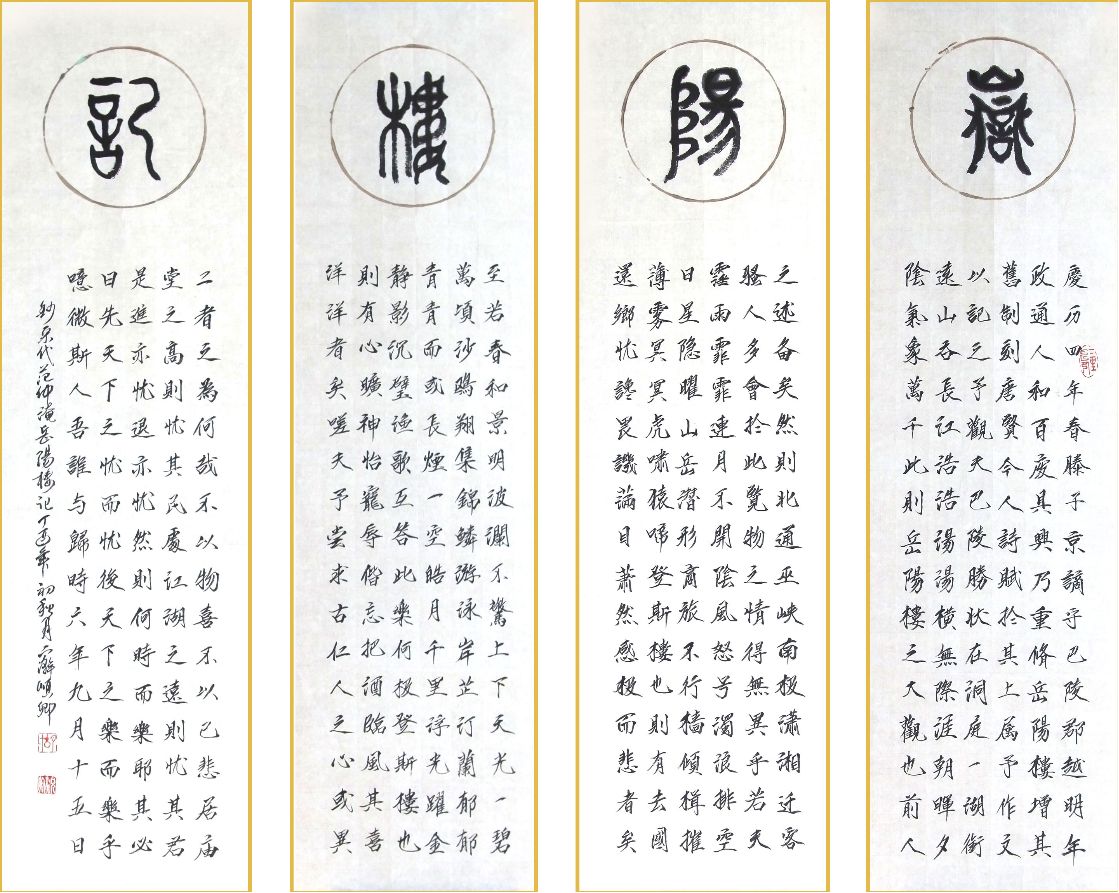 嶽
慶历四年春滕子京謫守巴陵郡越明年
政通人和百廢具興乃重脩岳陽樓增其
舊制刻唐賢今人詩賦於其上属予作文
以記之予觀夫巴陵勝状在洞庭一湖銜
遠山吞長江浩浩湯湯橫無際涯朝暉夕
陰氣象萬千此則岳陽樓之大觀也前人
陽
之述备矣然則北通巫峽南极瀟湘迁客
騷人多會於此覽物之情得無異乎若夫
霪雨霏霏連月不開陰風怒号濁浪排空
日星隐曜山岳潛形商旅不行檣傾楫摧
薄雾冥冥虎嘯猿啼登斯樓也則有去國
還鄉忧讒畏譏滿目蕭然感极而悲者矣
樓
至若春和景明波瀾不驚上下天光一碧
萬頃沙鷗翔集錦鱗游泳岸芷汀蘭郁郁
青青而或長煙一空皓月千里浮光躍金
静影沉璧渔歌互答此樂何极登斯樓也
則有心曠神怡寵辱偕忘把酒臨風其喜
洋洋者矣嗟夫予尝求古仁人之心或異
記
二者之為何哉不以物喜不以己悲居庙
堂之高則忧其民處江湖之遠則忧其君
是進亦忧退亦忧然則何時而樂耶其必
曰先天下之忧而忧後天下之樂而樂乎
噫微斯人吾誰与歸時六年九月十五日
鈔宋代范仲淹岳陽樓记丁酉年初秋月順卿